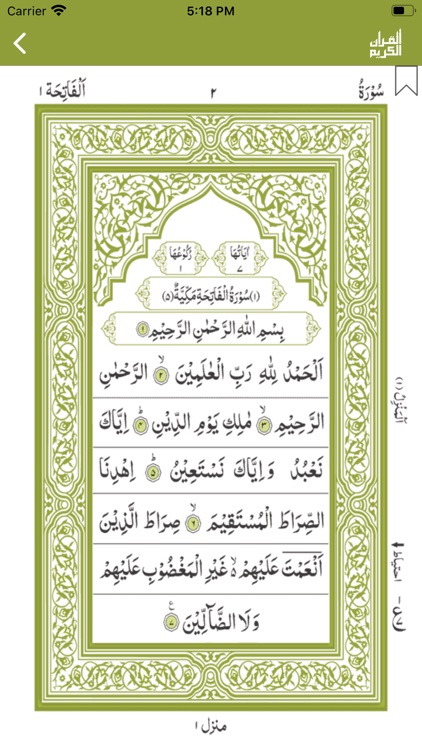 Carrier 5:18 PM
القرآن الكريم
سُوْرَةُ ٢ اَلْفَاتِحَة ١
اٰيَاتُهَا ٧ رُكُوْعُهَا ١
(١) سُوْرَةُ الْفَاتِحَةِ مَكِّيَّةٌ (٥)
بِسْمِ اللّٰهِ الرَّحْمٰنِ الرَّحِيْمِ ١
اَلْحَمْدُ لِلّٰهِ رَبِّ الْعٰلَمِيْنَ ٢ الرَّحْمٰنِ
الرَّحِيْمِ ٣ مٰلِكِ يَوْمِ الدِّيْنِ ٤ اِيَّاكَ
نَعْبُدُ وَاِيَّاكَ نَسْتَعِيْنُ ٥ اِهْدِنَا
الصِّرَاطَ الْمُسْتَقِيْمَ ٦ صِرَاطَ الَّذِيْنَ
اَنْعَمْتَ عَلَيْهِمْ ۙ۬ غَيْرِ الْمَغْضُوْبِ عَلَيْهِمْ
وَلَا الضَّآلِّيْنَ ٧
اَلْمَنْزِلُ (١)
احتیاط
منزل ١